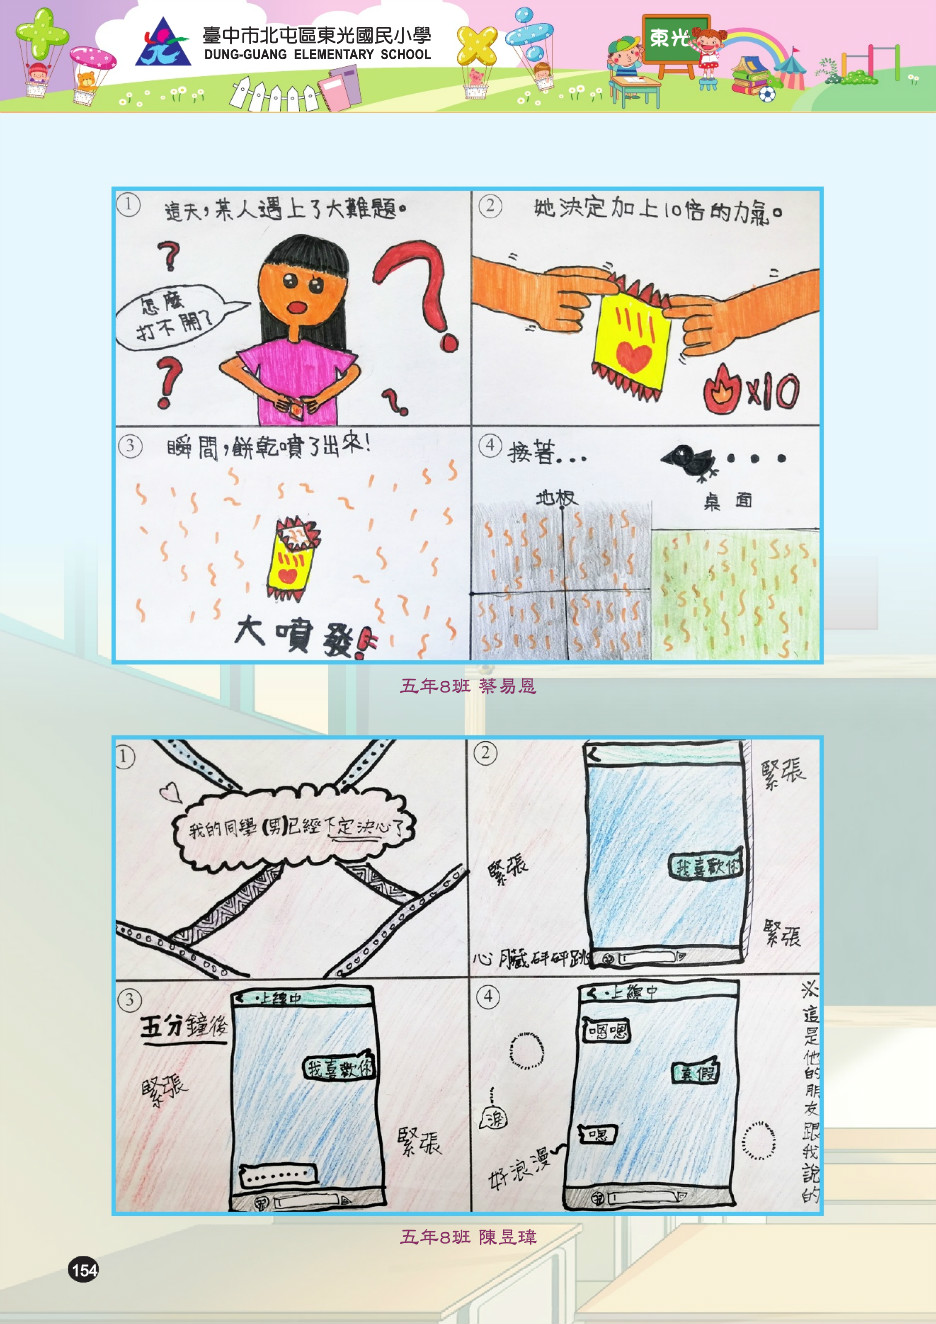 臺中市北屯區東光國民小學
DUNG-GUANG ELEMENTARY SCHOOL
東光
① 這天，某人遇上了大難題。
怎麼
打不開？
② 她決定加上10倍的力氣。
×10
③ 瞬間，餅乾噴了出來！
大噴發！
④ 接著...
地板
桌面
五年8班 蔡易恩
①
我的同學(男)已經下定決心了
②
緊張
我喜歡你
緊張
緊張
心臟砰砰跳
③ 上線中
五分鐘後
我喜歡你
緊張
緊張
④ 上線中
嗯嗯
真假
淚
嗯
好浪漫
※這是他的朋友跟我說的
五年8班 陳昱瑋
154